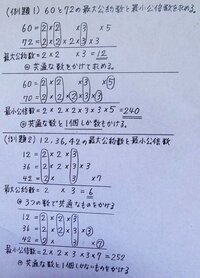 (例題1) 60と72の最大公約数と最小公倍数を求める。
60=2×2 ×3 ×5
72=2×2×2×3×3
最大公約数=2 × 2 × 3 =12
@共通な数をかけて求める。
60=2×2 ×3 ×5
70=2×2×2×3×3
最小公倍数=2×2×2×3×3×5=240
@共通な数と1個しかない数もかける。
(例題2) 12,36,42の最大公約数と最小公倍数
12=2×2×3
36=2×2×3×3
42=2 ×3 ×7
最大公約数=2 × 3 =6
@3つの数で共通なものをかける
12=2×2×3
36=2×2×3×3
42=2 ×3 ×7
最小公倍数=2×2×3×3×7=252
@共通な数と1個しかないものもかける